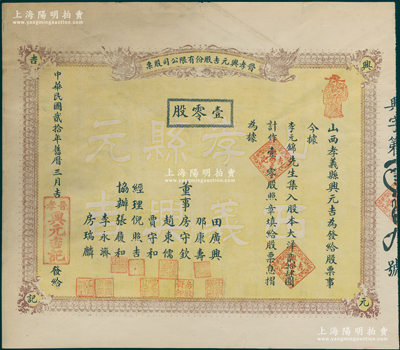 上海陽明拍賣
WWW.YMAUCTION.COM
晉孝興元𠮷股份有限公司股票
興
𠮷
元
記
壹零股
山西孝義縣興元𠮷為發給股票事
今據
李元錦先生集入股本大洋
計作壹零股照章填給股票息摺
為據
董事
田廣興
邵康壽
房守欽
趙東儒
賈守和
經理 倪照𠮷
協辦 張履和
李永濟
房瑞麟
中華民國貳拾年舊曆三月𠮷
興元𠮷記
發給
興字第
號
上海陽明拍賣